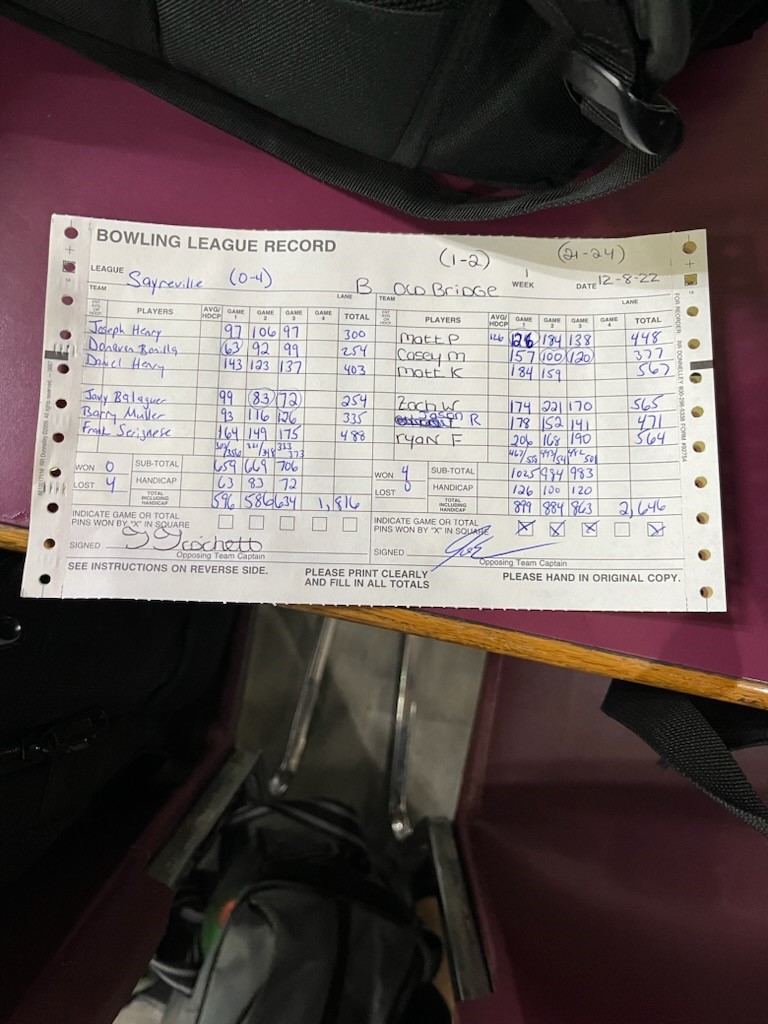 BOWLING LEAGUE RECORD
(1-2) (21-24)
LEAGUE Sayreville (0-4) B Old Bridge WEEK 1 DATE 12-8-22
TEAM LANE TEAM LANE
PLAYERS AVG/HDCP GAME 1 GAME 2 GAME 3 GAME 4 TOTAL PLAYERS AVG/HDCP GAME 1 GAME 2 GAME 3 GAME 4 TOTAL
Joseph Henry 97 106 97 300 Matt P 126 126 184 138 448
Donovan Bonilla 63 92 99 254 Casey M 157 100 120 377
Daniel Henry 143 123 137 403 Matt K 184 159 567
Javy Balaguer 99 83 72 254 Zach W 174 221 170 565
Barry Muller 93 116 126 335 Jason R 178 152 141 471
Frank Serignese 164 149 175 488 Ryan F 206 168 190 564
WON 0 SUB-TOTAL 659 669 706 WON 4 SUB-TOTAL 1025 984 983
LOST 4 HANDICAP 63 83 72 LOST 0 HANDICAP 126 100 120
TOTAL INCLUDING HANDICAP 596 586 634 1,816 TOTAL INCLUDING HANDICAP 899 884 863 2,646
INDICATE GAME OR TOTAL PINS WON BY "X" IN SQUARE INDICATE GAME OR TOTAL PINS WON BY "X" IN SQUARE X X X X
SIGNED SIGNED
Opposing Team Captain Opposing Team Captain
SEE INSTRUCTIONS ON REVERSE SIDE. PLEASE PRINT CLEARLY AND FILL IN ALL TOTALS PLEASE HAND IN ORIGINAL COPY.